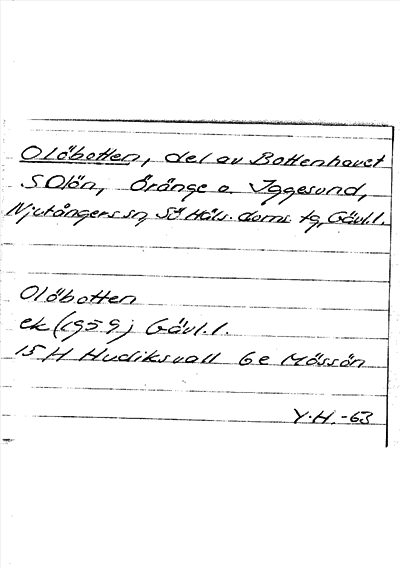 Olöbotten, del av Bottenhavet
S Olön, Öränge o. Iggesund,
Njutångers sn, Sö Häls. doms tg, Gävl.l.
Olöbotten
ek (1959) Gävl.l.
15 H Hudiksvall 6e Mössön
Y.H. -63